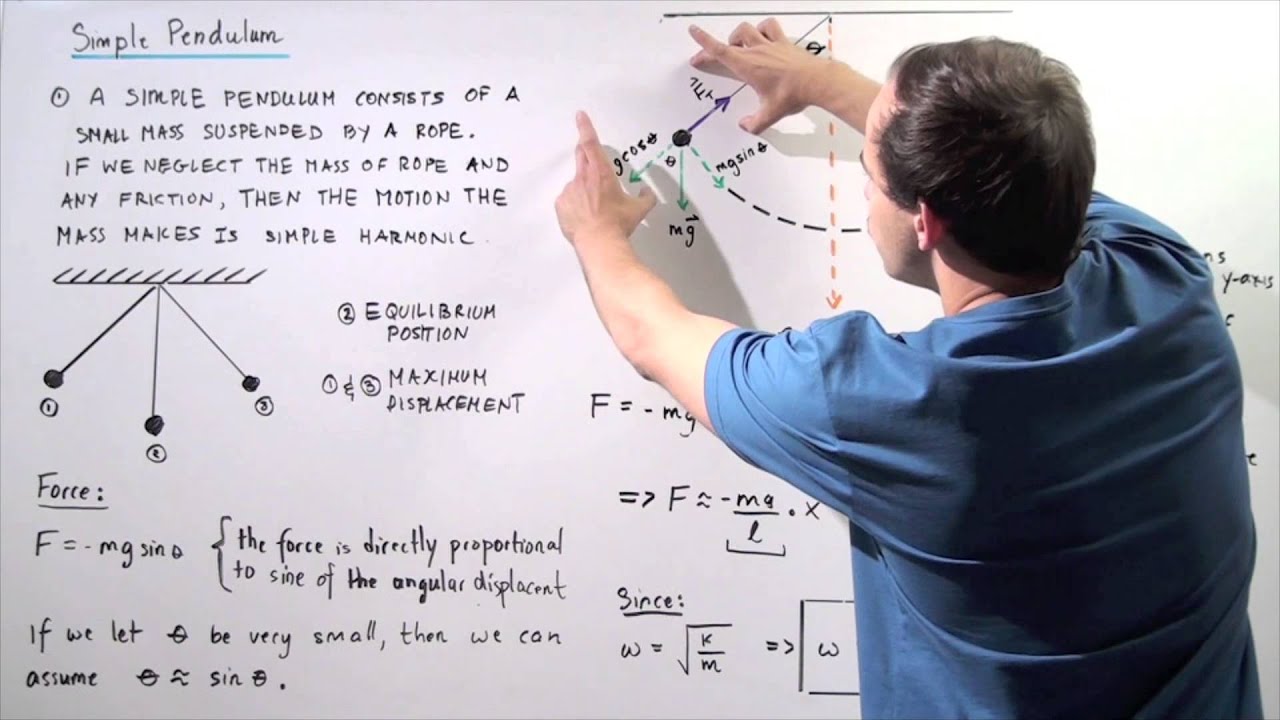 Simple Pendulum
① A SIMPLE PENDULUM CONSISTS OF A
SMALL MASS SUSPENDED BY A ROPE.
IF WE NEGLECT THE MASS OF ROPE AND
ANY FRICTION, THEN THE MOTION THE
MASS MAKES IS SIMPLE HARMONIC.
① ② ③
② EQUILIBRIUM
POSITION
① & ③ MAXIMUM
DISPLACEMENT
Force:
F = - mg sin θ
the force is directly proportional
to sine of the angular displacent
If we let θ be very small, then we can
assume θ ≈ sin θ.
θ
gcosθ
θ
mgsinθ
mg
ns
y-axis
F = - mg
=> F ≈ -mg/l • x
Since:
ω = √(k/m) => ω